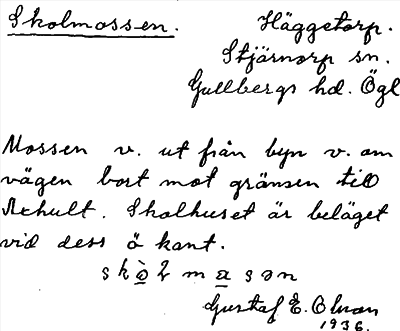 Skolmossen.
Häggetorp.
Stjärnorp sn.
Gullbergs hd. Ögl
Mossen v. ut från byn v. om
vägen bort mot gränsen till
Skolhuset är beläget
vid dess ö kant.
Gustaf E. Olson
1936.